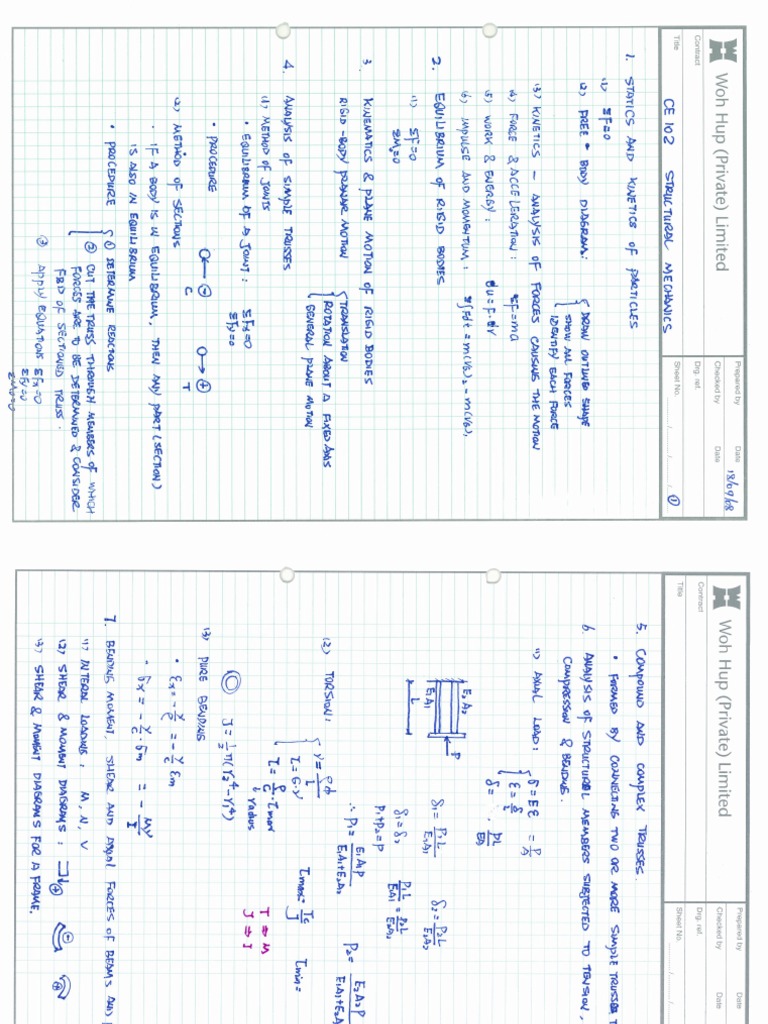 Woh Hup (Private) Limited
Prepared by
Date
18/09/08
Checked by
Date
Contract
Drg. ref.
Title
CE 102 STRUCTURAL MECHANICS
Sheet No.
1
1. STATICS AND KINETICS OF PARTICLES
(1) ΣF=0
(2) FREE - BODY DIAGRAM:
DRAW OUTLINED SHAPE
SHOW ALL FORCES
IDENTIFY EACH FORCE
(3) KINETICS – ANALYSIS OF FORCES CAUSING THE MOTION
(4) FORCE & ACCELERATION: ΣF=ma
(5) WORK & ENERGY: dU = F·dr
(6) IMPULSE AND MOMENTUM:
2. EQUILIBRIUM OF RIGID BODIES
(1) ΣF=0
ΣM0=0
3. KINEMATICS & PLANE MOTION OF RIGID BODIES
RIGID-BODY PLANAR MOTION
TRANSLATION
ROTATION ABOUT A FIXED AXIS
GENERAL PLANE MOTION
4. ANALYSIS OF SIMPLE TRUSSES
(1) METHOD OF JOINTS
• EQUILIBRIUM OF A JOINT: ΣFx=0
ΣFy=0
• PROCEDURE
C
T
(2) METHOD OF SECTIONS
• IF A BODY IS IN EQUILIBRIUM, THEN ANY PART (SECTION)
IS ALSO IN EQUILIBRIUM
• PROCEDURE
① DETERMINE REACTIONS
② CUT THE TRUSS THROUGH MEMBERS OF WHICH
FORCES ARE TO BE DETERMINED & CONSIDER
FBD OF SECTIONED TRUSS.
③ APPLY EQUATIONS ΣFx=0
ΣFy=0
ΣM0=0
Woh Hup (Private) Limited
Prepared by
Date
Checked by
Date
Contract
Drg. ref.
Title
Sheet No.
5. COMPOUND AND COMPLEX TRUSSES.
• FORMED BY CONNECTING TWO OR MORE SIMPLE TRUSSES
6. ANALYSIS OF STRUCTURAL MEMBERS SUBJECTED TO TENSION,
COMPRESSION & BENDING.
(1) AXIAL LOAD:
E2A2
E1A1
P
L
δ1 = P1L/E1A1
δ2 = P2L/E2A2
δ1 = δ2
P1L/E1A1 = P2L/E2A2
P1+P2=P
∴ P1 = E1A1P/E1A1+E2A2
P2 = E2A2P/E1A1+E2A2
(2) TORSION:
τ = G·γ
τ = ρ/c · τmax
radius
τmax = Tc/J
τmin =
J = ½π(r2⁴-r1⁴)
T ⇒ M
J ⇒ I
(3) PURE BENDING
• εx = -y/ρ = -y/c εm
• σx = -y/c · σm = -My/I
7. BENDING MOMENT, SHEAR AND AXIAL FORCES OF BEAMS AND
(1) INTERAL LOADING: M, N, V
(2) SHEAR & MOMENT DIAGRAMS:
(3) SHEAR & MOMENT DIAGRAMS FOR A FRAME.